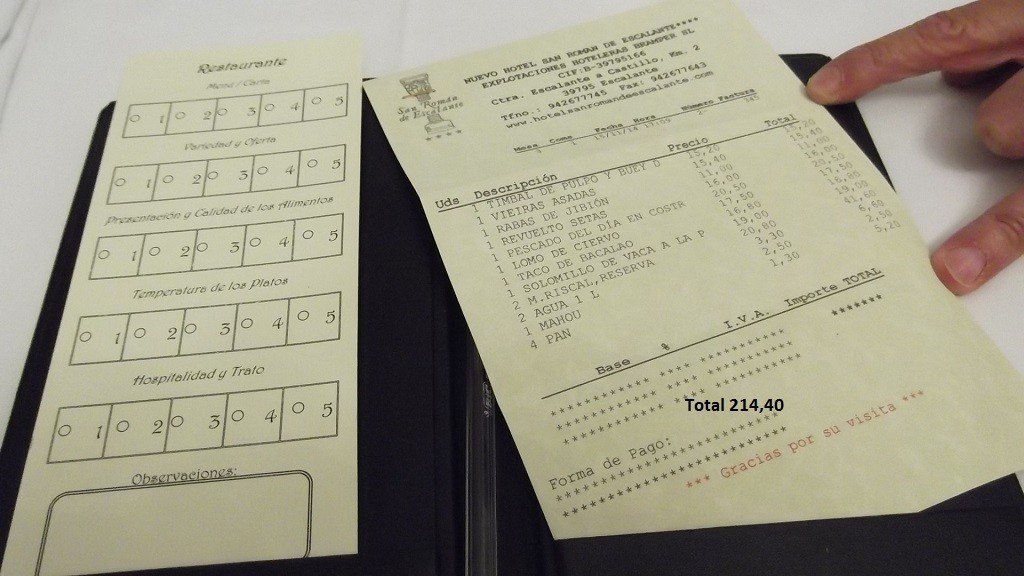 Restaurante
Menú / Carta
1 2 3 4 5
Variedad y Oferta
1 2 3 4 5
Presentación y Calidad de los Alimentos
1 2 3 4 5
Temperatura de los Platos
1 2 3 4 5
Hospitalidad y Trato
1 2 3 4 5
Observaciones:
San Román
de Escalante
****
NUEVO HOTEL SAN ROMAN DE ESCALANTE****
EXPLOTACIONES HOTELERAS BRAMPER SL
CIF:B-39795166
Ctra. Escalante a Castillo, Km. 2
39795 Escalante
Tfno.: 942677745 Fax: 942677643
www.hotelsanromandeescalante.com
Mesa Coms Fecha Hora Número Factura
Uds Descripción Precio Total
1 TIMBAL DE PULPO Y BUEY D 15,20 15,20
1 VIEIRAS ASADAS 15,40 15,40
1 RABAS DE JIBIÓN 11,00 11,00
1 REVUELTO SETAS 16,00 16,00
1 PESCADO DEL DÍA EN COSTR 20,50 20,50
1 LOMO DE CIERVO 17,50 17,50
1 TACO DE BACALAO 16,80 16,80
1 SOLOMILLO DE VACA A LA P 19,00 19,00
2 M.RISCAL,RESERVA 20,80 41,60
2 AGUA 1 L 3,30 6,60
1 MAHOU 2,50 2,50
4 PAN 1,30 5,20
Base % I.V.A. Importe TOTAL
Total 214,40
Forma de Pago:
*** Gracias por su visita ***